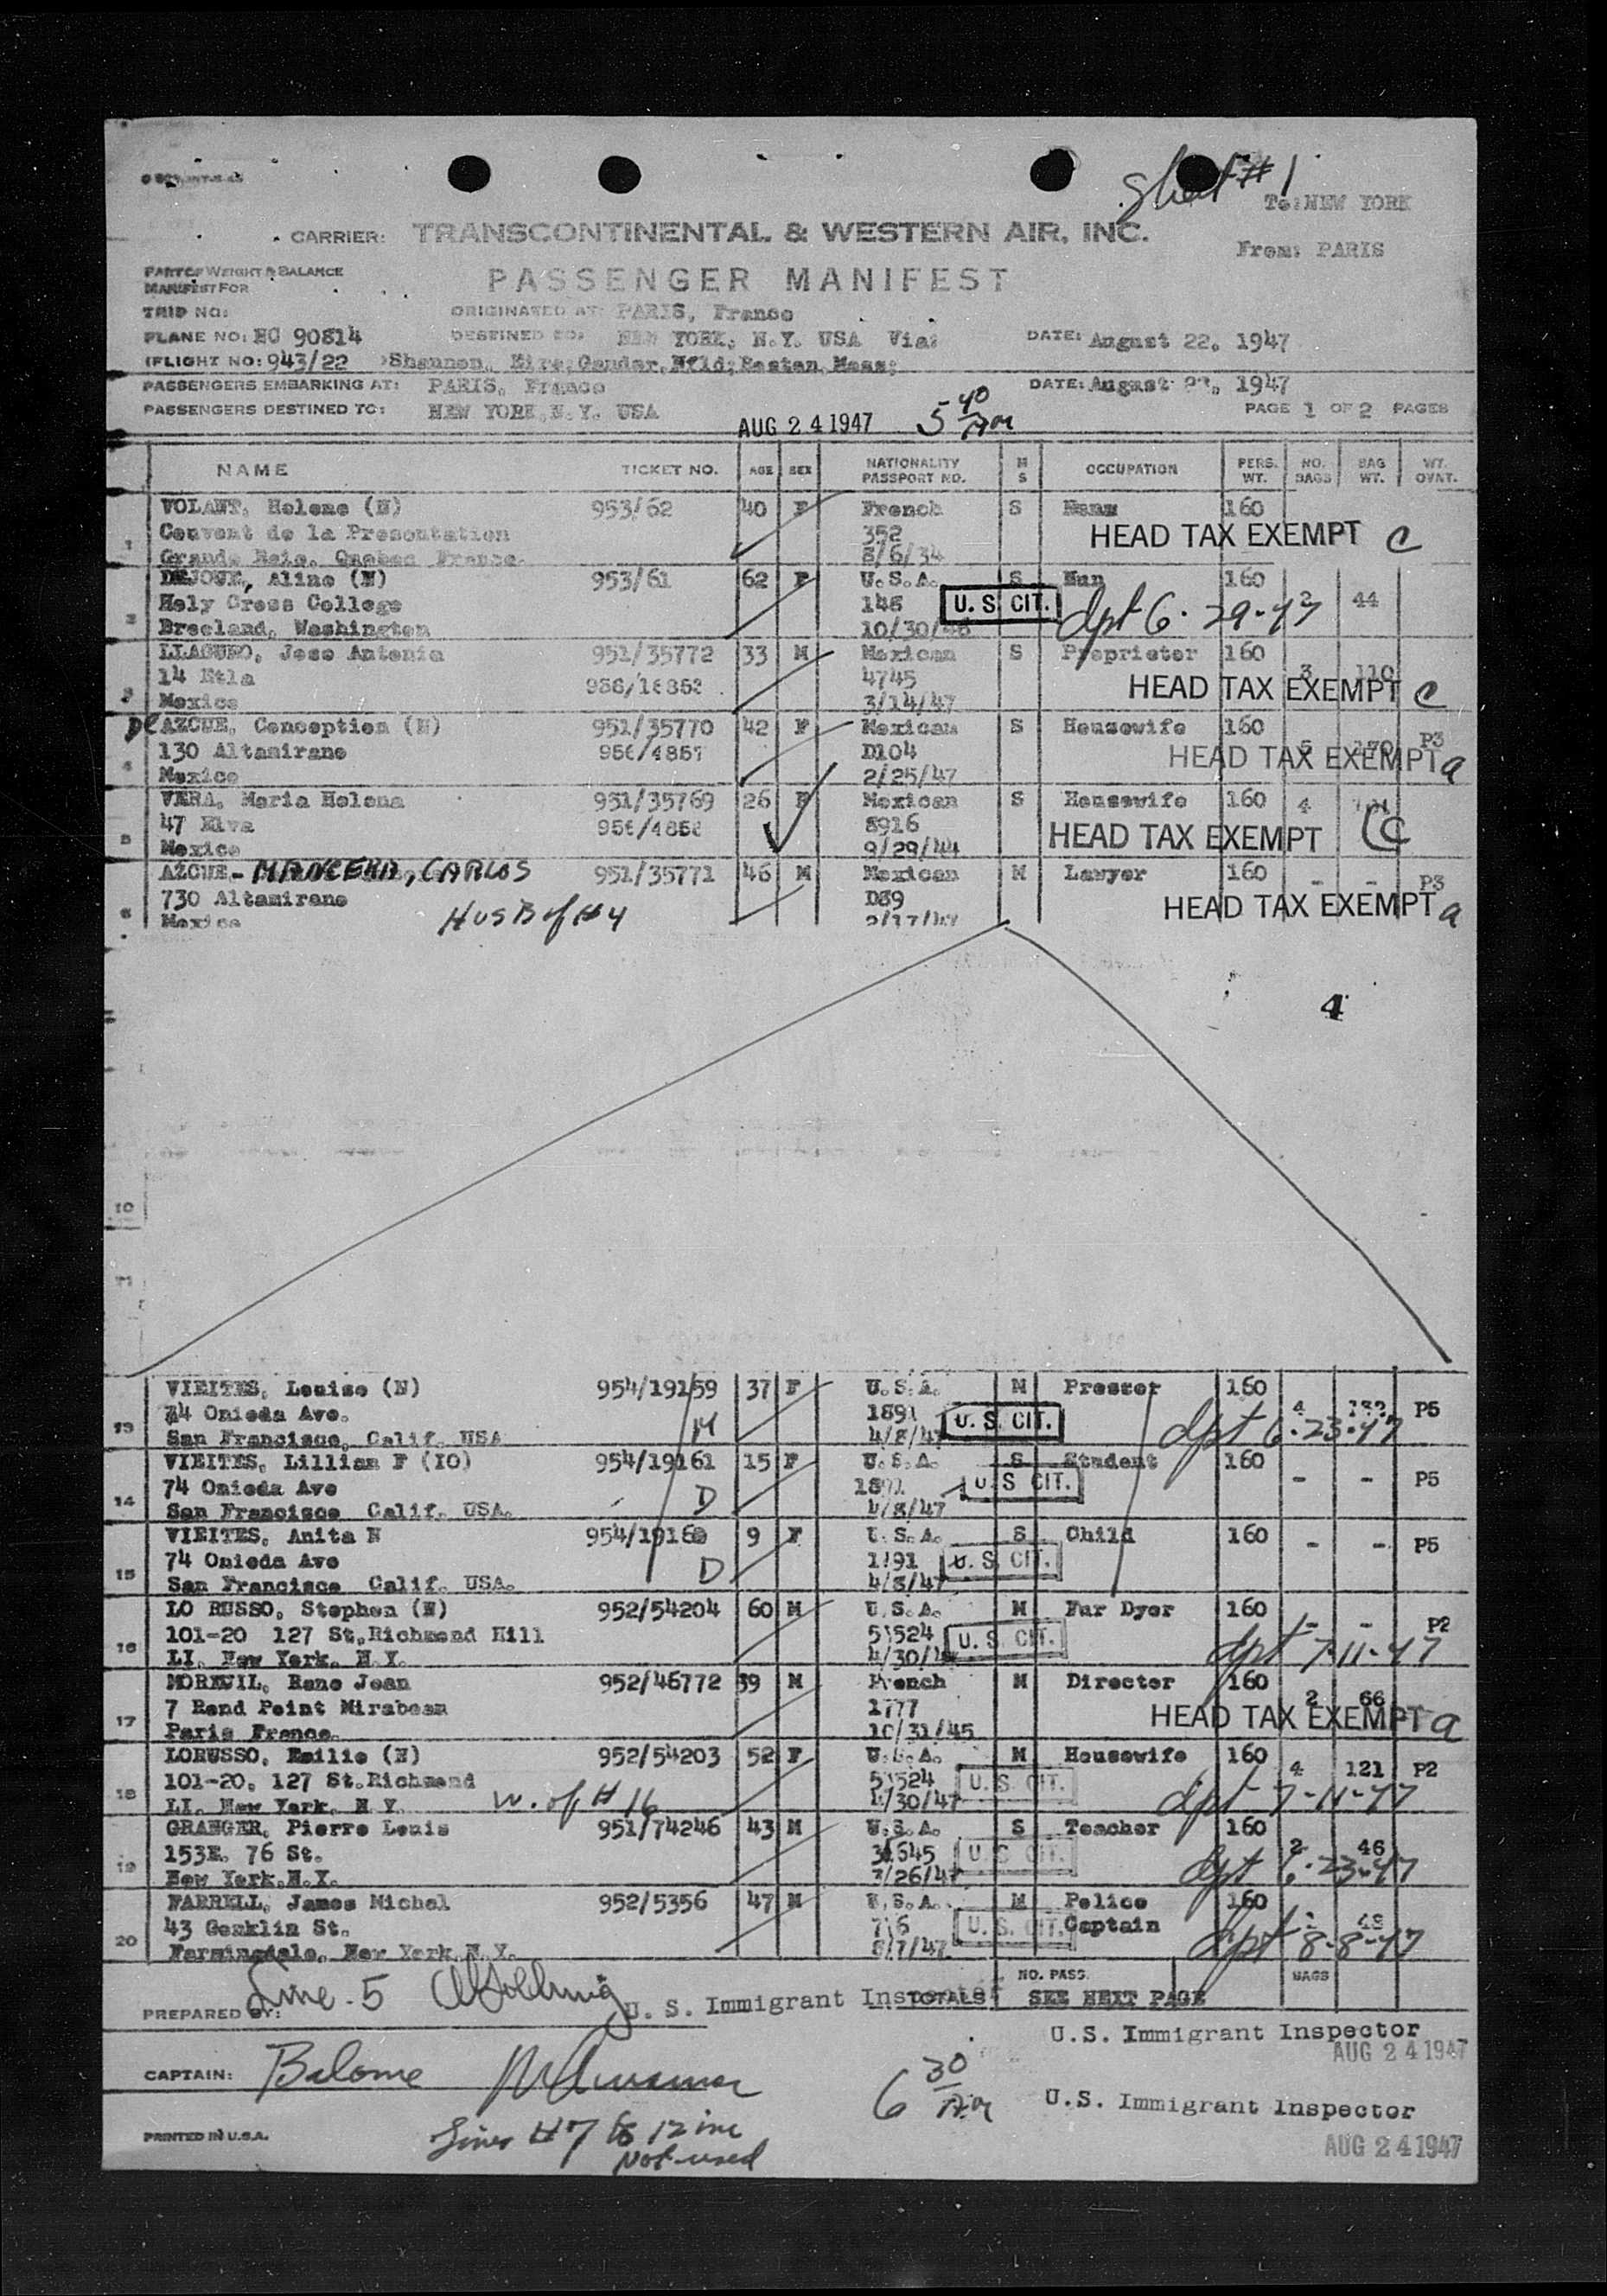 Sheet #1
To: NEW YORK
CARRIER: TRANSCONTINENTAL & WESTERN AIR, INC.
From: PARIS
PART OF WEIGHT & BALANCE
MANIFEST FOR
PASSENGER MANIFEST
TRIP NO:
ORIGINATED AT: PARIS, France
PLANE NO: NC 90814
DESTINED TO: NEW YORK, N.Y. USA Via:
DATE: August 22, 1947
(FLIGHT NO: 943/22 Shannon, Eire; Gander, Nfld; Boston, Mass;
PASSENGERS EMBARKING AT: PARIS, France
DATE: August 1947
PASSENGERS DESTINED TO: NEW YORK, N.Y. USA
PAGE 1 OF 2 PAGES
AUG 24 1947 5 40 Am
NAME TICKET NO. AGE SEX NATIONALITY PASSPORT NO. M S OCCUPATION PERS. WT. NO. BAGS BAG WT. WT. OVAT.
VOLANT, Helene (N) 953/62 40 F French S 160
Convent de la Presentation 352 HEAD TAX EXEMPT C
1 Grande Quebec France. 8/6/34
DEJOUX, Aline (N) 953/61 62 F U.S.A. S Nun 160
Holy Cross College 146 U.S. CIT. dpt 6-29-47 2 44
2 Washington 10/30/46
LLAGUNO, Jose Antonio 951/35772 33 M Mexican S Proprietor 160
14 Etla 4745 3 110 HEAD TAX EXEMPT C
3 Mexico 3/14/47
De AZCUE, Conception (N) 951/35770 42 F Mexican S Housewife 160
130 Altamirano D104 HEAD TAX EXEMPT a P3
4 Mexico 2/25/47
VERA, Maria Helena 951/35769 26 F Mexican S Housewife 160 4
47 8916 HEAD TAX EXEMPT C
5 Mexico 9/29/44
AZCUE - MANCERA, CARLOS 951/35771 46 M Mexican M Lawyer 160 - - P3
730 Altamirano HUSB of #4 D89 HEAD TAX EXEMPT a
6 Mexico
4
10
11
VIEITES, Louise (N) 954/19159 37 F U.S.A. M 160
74 Onieda Ave. M 1891 U.S. CIT. 4 dpt 6-23-47 P5
13 San Francisco, Calif. USA 4/8/47
VIEITES, Lillian F (IO) 954/19161 15 F U.S.A. S Student 160
74 Onieda Ave D U.S. CIT. - - P5
14 San Francisco Calif. USA. 4/8/47
VIEITES, Anita N 954/19160 9 F U.S.A. S Child 160
74 Onieda Ave D U.S. CIT. - - P5
15 San Francisco Calif. USA. 4/8/47
LO RUSSO, Stephen (N) 952/54204 60 M U.S.A. M Fur Dyer 160
101-20 127 St. Richmond Hill U.S. CIT. - - P2
16 LI. New York. N.Y. dpt 7-11-47
MOREUIL, Rene Jean 952/46772 39 M French M Director 160
7 Rond Point Mirabeau 1777 2 66 HEAD TAX EXEMPT a
17 Paris France. 10/31/45
LORUSSO, Emilie (N) 952/54203 52 F U.S.A. M Housewife 160
101-20, 127 St. Richmond U.S. CIT. 4 121 P2
18 LI. New York. N.Y. W. of #16 4/30/47 dpt 7-11-47
GRANGER, Pierre Louis 951/74246 43 M U.S.A. S Teacher 160
153E. 76 St. U.S. CIT. 2 46
19 New York.N.Y. dpt 6-23-47
FARRELL, James Michel 952/5356 47 M U.S.A. M Police 160
43 St. U.S. CIT. Captain
20 Farmingdale, New York N.Y. dpt 8-8-47
Line 5
PREPARED BY: U. S. Immigrant Inspector TOTALS NO. PASS. SEE NEXT PAGE BAGS
U.S. Immigrant Inspector
AUG 24 1947
CAPTAIN:
6 30 Am
U.S. Immigrant Inspector
PRINTED IN U.S.A.
Lines #7 to 12 inc
Not used
AUG 24 1947